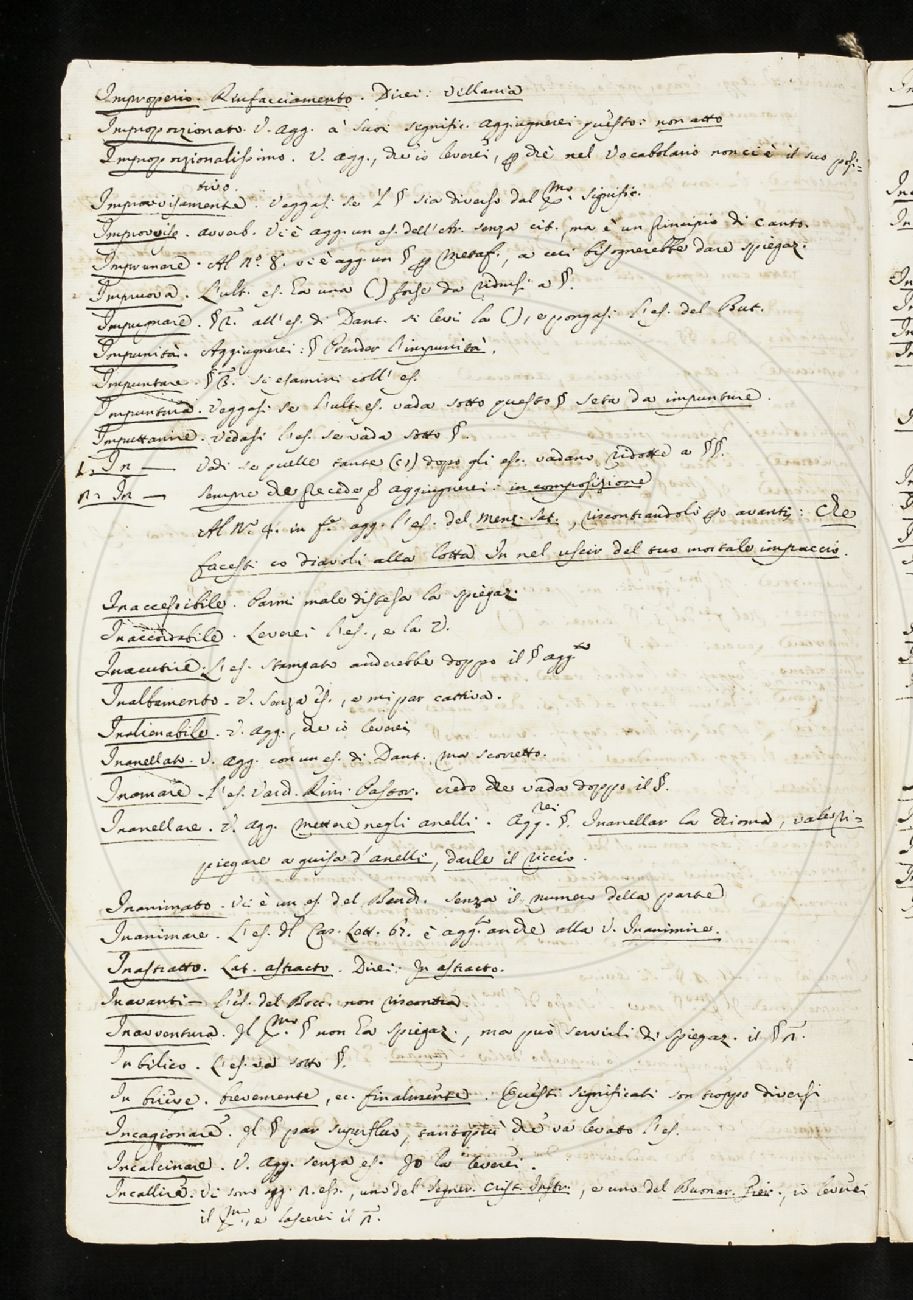 Improperio. Rinfacciamento. Direi: villania
Improporzionato. V. agg. a' suoi signific. aggiugnerei questo: non atto
Improporzionalissimo. V. agg., che io leverei, perchè nel Vocabolario non ci è il suo posi=
tivo.
Improvvisamente. Veggasi se l' § sia diverso dal pmo. signific.
Improvvis. avverb. Vi è agg. un es. dell'Ar. senza cit., ma è un principio di canto.
Imprunare. Al No. 8. vi è agg. un § per metaf., a cui bisognerebbe dare spiegaz.
Impruova. L'ult. es. ha una () forse da ridursi a §.
Impugnare. § 2. all'es. di Dant. si levi la (), e pongasi l'es. del But.
Impunità. Aggiugnerei: § Prender l'impunità.
Impuntare. § 3. si esamini coll'es.
Impuntura. Veggasi se l'ult. es. vada sotto questo § seta da impunture.
Imputtanire. Vedasi l'es. se vada sotto §.
1. In — Vedi se quelle tante () dopo gli es. vadano ridotte a §§.
2. In — sempre che precede § aggiugnerei: in composizione
Al No. 4. in f. agg. l'es. del Menz. Sat., riscontrandoli più avanti: Che
facesti co diavoli alla lotta In nel uscir del tuo mortale impaccio.
Inaccessibile. Parmi male distesa la spiegaz.
Inaccordabile. Leverei l'es., e la V.
Inacutire. L'es. stampato anderebbe doppo il § aggto
Inalbamento. V. senza es., e mi par cattiva.
Inalienabile. V. agg., che io leverei
Inanellato. V. agg. con un es. di Dant. ma scorretto.
Inamare. L'es. Vard. Rim. Pastor. credo che vada doppo il §.
Inanellare. V. agg. mettere negli anelli. Agg.rei §. Inanellar la chioma, vale ri=
piegare a guisa d'anelli, darle il riccio.
Inanimato. Vi è un es. del Bemb. senza il numero della parte
Inanimare. L'es. del Cas. Lett. 67. è agg.to anche alla V. Inanimire.
Inastratto. Lat. astracto. Direi: In astracto.
Inavanti — L'es. del Bocc. non riscontra.
Inavventura. Il pmo. § non ha spiegaz., ma può servirli di spiegaz. il § 2.
In bilico. L'es. va sotto §.
In brieve. brevemente, ec. finalmente. Questi significati son troppo diversi
Incagionare. Il § par superfluo, tantopiù che va levato l'es.
Incalcinare. V. agg. senza es. Io la leverei.
Incallire. Vi sono agg. 2. es., uno del Segner. Crist. Instr., e uno del Buonar. Fier., io leverei
il pmo., e lascerei il 2.